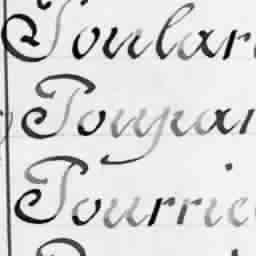 Toular
Toupar
Tourrie